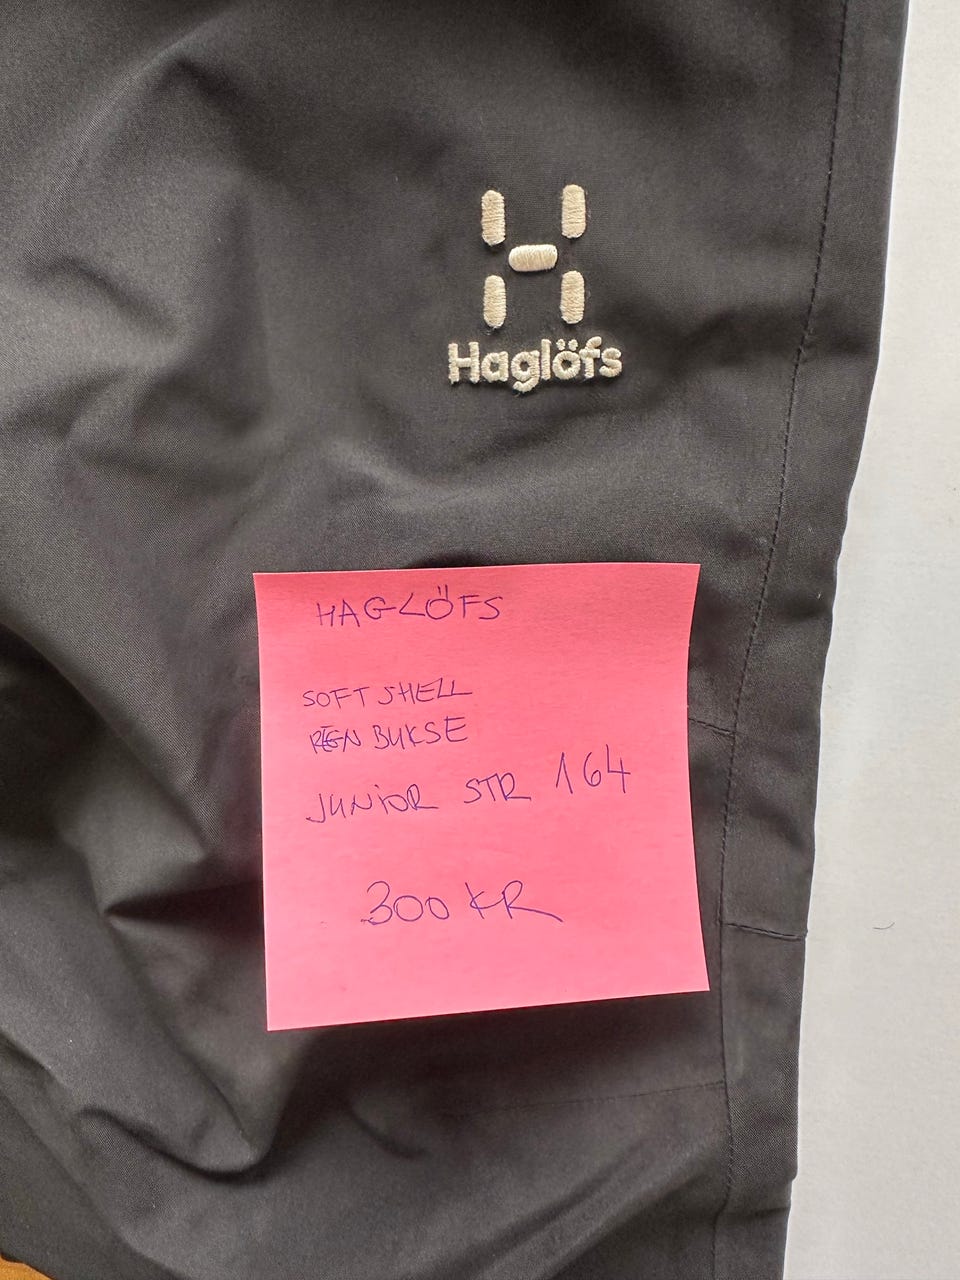 Haglöfs
HAGLÖFS
SOFTSHELL
REGN BUKSE
JUNIOR STR 164
300 KR